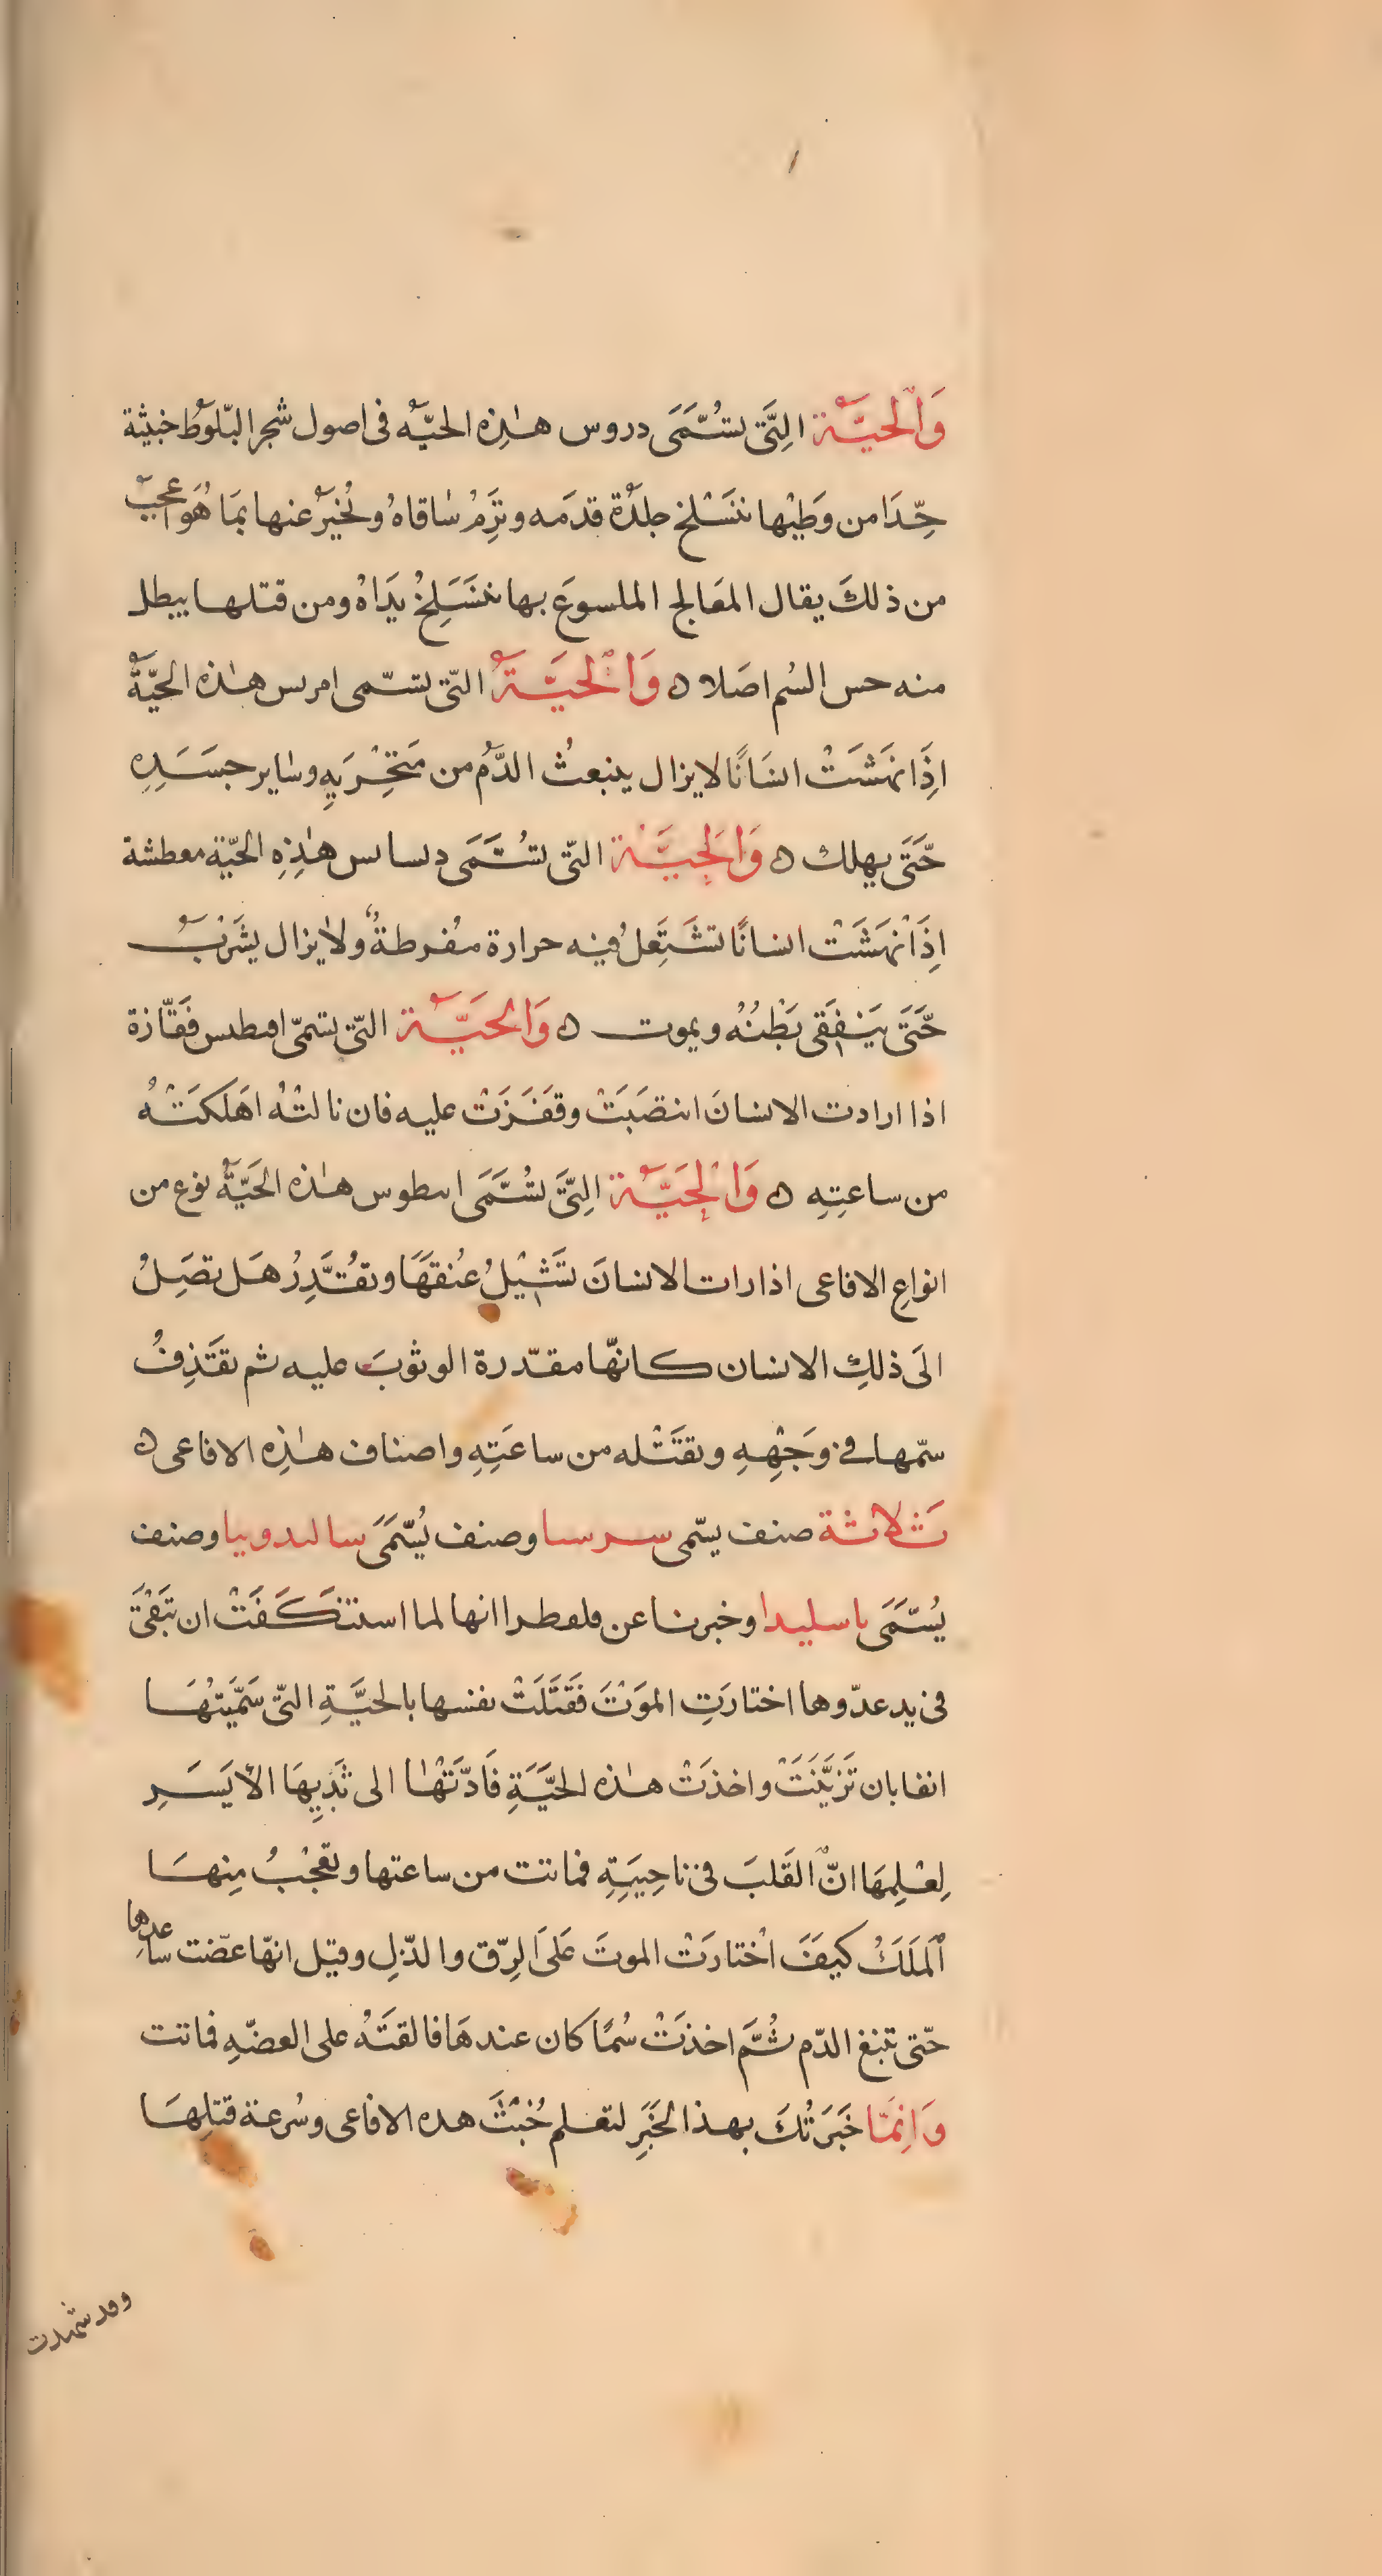 وَالْحَيَّة الَّتِي تُسَمَّى دروس هٰذِه الحيَّه في اصول شجر البلّوط خبيثة
جِدَّا من وَطِيْها تنْسَلخ جلْدة قدمَه وتَرِمُ سٰاقاهُ ونُخبرْ عنها بمَا هُوَ اعجَبْ
من ذلكَ يقال المعَالج الملسوعَ بها تنْسَلِخُ يَدَاهُ ومن قتلها يبطل
منه حس السُم اصَلا ه وَالْحيَّةَ التّى تسّمى امرس هٰذه الحيّةُ
اِذَا نهَشَتْ انسَانًا لا يزال ينبعثُ الدَّمُ من مَنْخِرَيهِ وسٰاير جسَدِهِ
حَتَّى يهلك ه وَالْحيَّة التّى تُسَمَّى دساس هٰذِهِ الحيّة معطشة
اِذَا نهَشَتْ انسانًا تشَتَعِلُ فيه حرارة مفرطةٌ ولا يزال يشرَبْ
حَتَّى يَنفَقى بَطْنُهُ ويموت ه وَالحَيَّة التّى تسمّى افطس قفّازة
اذا ارادت الانسانَ انتصَبَتْ وقفَزَتْ عليه فان نالتْهُ اهَلكَتْهُ
من ساعتِهِ ه وَالْحَيَّة الَّتِي تُسَمَّى اسطوس هٰذه الحَيَّةُ نوع من
انواعِ الافاعى اذا رات الانسانَ تشَيْلُ عُنقَهَا وتقُدَّرُ هَل تصَلُ
الَى ذلكِ الانسان كانهّا مقدّرة الوثوبَ عليه ثم تقذِفُ
سمّها في وَجْهِهِ وتقتْله من ساعَتِهِ واصناف هٰذِه الافاعى ه
ثَلاثة صنف يسّمى سرسا وصنف يُسَّمَى سالىدوىيا وصنف
يُسَّمَى باسليدا وخبرنا عن فلعطرا انها لما استنكَفَتْ ان تَبقَى
فى يد عدّوها اختارَتِ الموَتَ فقَتَلَتْ نفسها بالحيَّةِ التّى سَمَّيتُهَا
انفا بان تَزيَّنَتْ واخذَتْ هٰذه الحيَّةِ فَادَّنَتْهٰا الى ثَدِيهَا الأيَسَرِ
لِعْلِمِهَا انّ القَلبَ فى ناحِيَتِهِ فماتت من ساعتها وتعجْبُ مِنهَا
الْمَلَكْ كيفَ اخْتارَتْ الموتَ عَلىَ الرِّق والذّلِ وقيل انهّا عضّت ساعدها
حّتى تبَغ الدّم ثُمَّ اخذَتْ سُمًا كان عندهَا فالقتَهْ على العضّهِ فماتت
وَانِمَّا خَبرَتُكَ بهذا الخَبَرِ لتعلم خُبْثَ هده الافاعى وسُرعة قتلِهَا
وقد شهدت